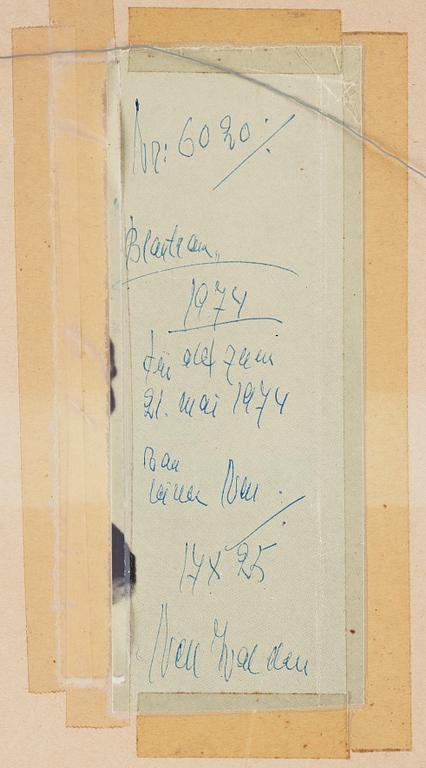 Nr: 6020 ./.
Blautraum
1974
für dich zum
21. mai 1974
von
deiner Nell ./.
17 x 25
Nell Walden